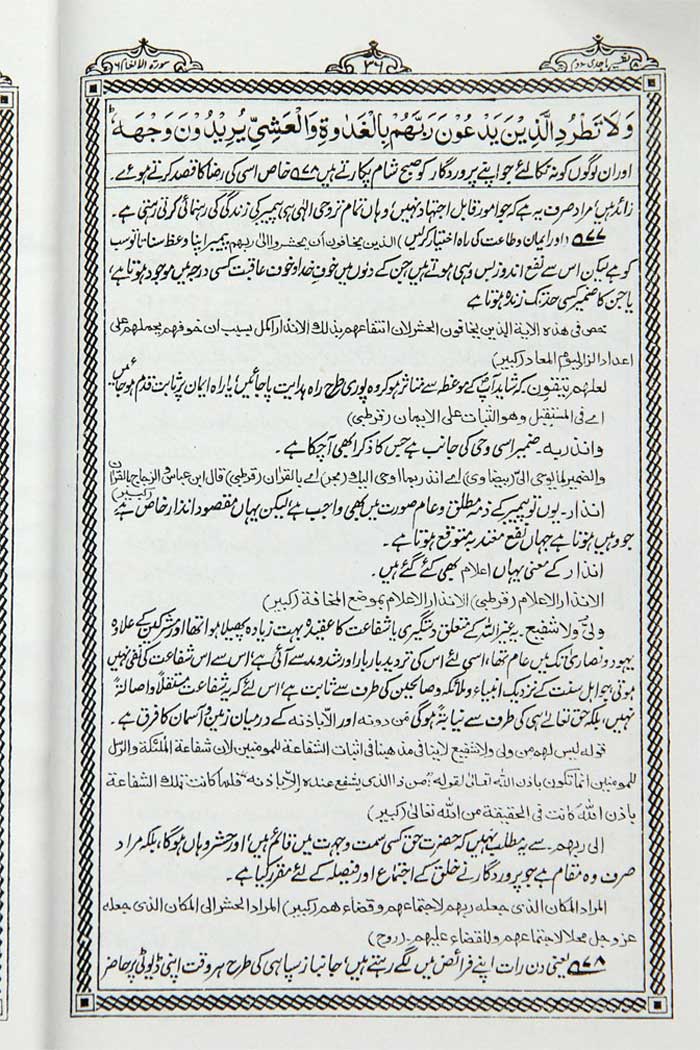 تفسیر ماجدی ۔ دوم
۳۶
سورۃ الانعام ۶
وَلَا تَطْرُدِ الَّذِيْنَ يَدْعُوْنَ رَبَّهُمْ بِالْغَدٰوةِ وَالْعَشِيِّ يُرِيْدُوْنَ وَجْهَهٗ ؕ
اور ان لوگوں کو نہ نکالئے جو اپنے پروردگار کو صبح شام پکارتے ہیں ۵۷۸ خاص اسی کی رضا کا قصد کرتے ہوئے۔
زائد ہیں مراد صرف یہ ہے کہ جو امور قابل اجتہاد نہیں، وہاں تمام تر وحی الٰہی ہی پیمبر کی زندگی کی رہنمائی کرتی رہتی ہے۔
۵۷۷ (اور ایمان و طاعت کی راہ اختیار کرلیں) الذین یخافون أن یحشروا الی ربھم پیمبر اپنا وعظ سناتا تو سب
کو ہے لیکن اس سے نفع اندوز بس وہی ہوتے ہیں جن کے دلوں میں خوفِ خدا و خوف عاقبت کسی درجہ میں موجود ہوتا ہے،
یا جن کا ضمیر کسی حد تک زندہ ہوتا ہے
خص فی ھذہ الایة الذین یخافون الحشر لان انتفاعھم بذلک الانذار اکمل بسبب ان خوفھم یحملھم علی
اعداد الزاد لیوم المعاد (کبیر)
لعلھم یتقون۔ کہ شاید آپؐ کے موعظہ سے متاثر ہو کر وہ پوری طرح راہ ہدایت پا جائیں، یا راہ ایمان پر ثابت قدم ہو جائیں
اے فی المستقبل وھو الثبات علی الایمان (قرطبی)
وانذر بہ۔ ضمیر اسی وحی کی جانب ہے جس کا ذکر ابھی آچکا ہے۔
والضمیر لما یوحی الی (بیضاوی) اے انذر بما اوحی الیک (بحر) اے بالقران (قرطبی) قال ابن عباسؓ والزجاج بالقران (کبیر)
انذار۔ یوں تو پیمبر کے ذمہ مطلق و عام صورت میں بھی واجب ہے، لیکن یہاں مقصود انذارِ خاص ہے،
جو وہیں ہوتا ہے جہاں نفع مغتدبہ متوقع ہوتا ہے۔
انذار کے معنی یہاں اعلام بھی کئے گئے ہیں۔
الانذار الاعلام (قرطبی) الانذار الاعلام بموضع المخافة (کبیر)
ولیّ ولا شفیع۔ یہ غیر اللہ کے متعلق دستگیری یا شفاعت کا عقیدہ بہت زیادہ پھیلا ہوا تھا اور مشرکین کے علاوہ
یہود و نصاریٰ تک میں عام تھا، اسی لئے اس کی تردید بار بار اور شد و مد سے آئی ہے، اس سے اس شفاعت کی نفی نہیں
ہوتی، جو اہل سنت کے نزدیک انبیاء و ملائکہ و صالحین کی طرف سے ثابت ہے، اس لئے کہ یہ شفاعت مستقلاً و اصالۃً
نہیں، بلکہ حق تعالےٰ ہی کی طرف سے نیابۃً ہوگی مَن دونہ اور الّا باذنہ کے درمیان زمین و آسمان کا فرق ہے۔
قوله لیس لھم من ولی ولا شفیع لاینافی مذھبنا فی اثبات الشفاعة للمومنین لان شفاعة الملٰئکة والرسل
للمومنین انما تکون باذن اللہ تعالیٰ لقوله ”من ذا الذی یشفع عندہ الّا باذنہ“ فلما کانت تلک الشفاعة
باذن اللہ کانت فی الحقیقة من اللہ تعالیٰ (کبیر)
الی ربھم۔ سے یہ مطلب نہیں کہ حضرت حق کسی سمت و جہت میں قائم ہیں، اور حشر وہاں ہوگا، بلکہ مراد
صرف وہ مقام ہے جو پروردگار نے خلق کے اجتماع اور فیصلہ کے لئے مقرر کیا ہے۔
المراد المکان الذی جعلہ ربھم لاجتماعھم وقضاء ھم (کبیر) المراد الحشر الی المکان الذی جعلہ
عزو جل محلا لاجتماعھم وللقضاء علیھم۔ (روح)
۵۷۸ یعنی دن رات اپنے فرائض میں لگے رہتے ہیں، جانباز سپاہی کی طرح ہر وقت اپنی ڈیوٹی پر حاضر